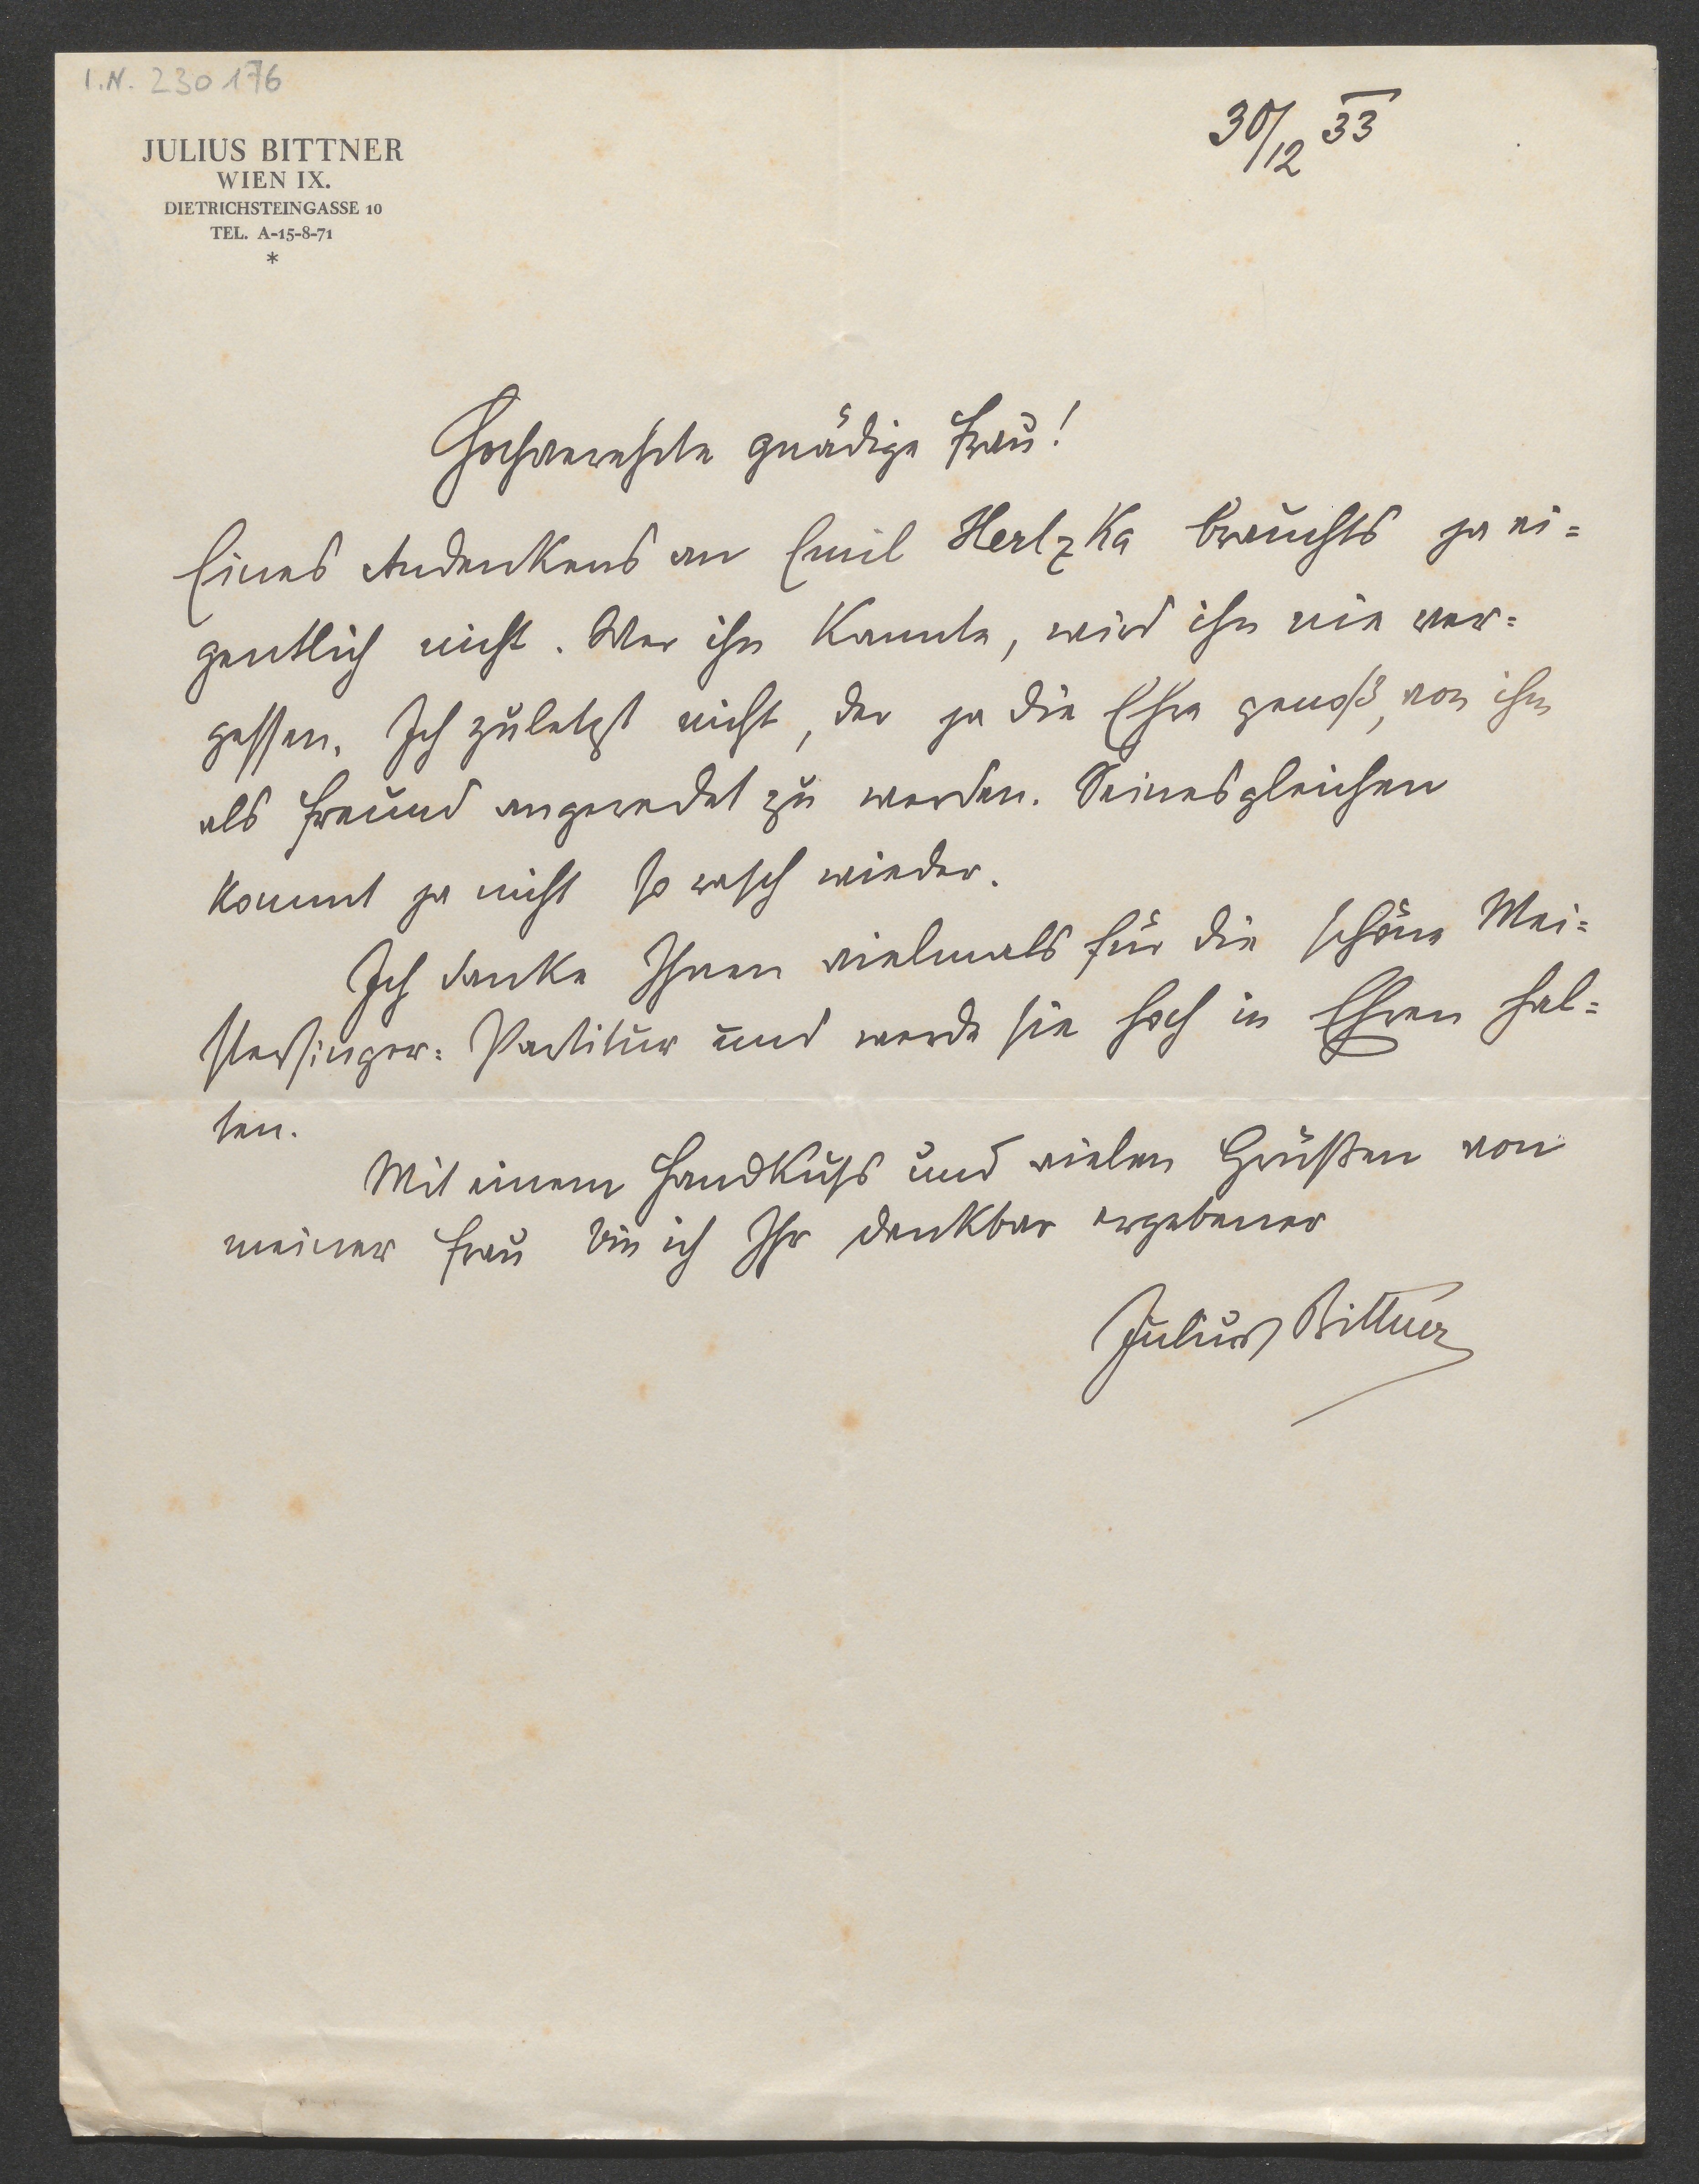 I.N. 230176
JULIUS BITTNER
WIEN IX.
DIETRICHSTEINGASSE 10
TEL. A-15-8-71
*
30/12 33
Hochverehrte gnädige Frau!
Eines Andenkens an Emil Hertzka brauchts ja ei=
gentlich nicht. Wer ihn kannte, wird ihn nie ver=
gessen. Ich zuletzt nicht, der ja die Ehre genoß, von ihm
als Freund angeredet zu werden. Seinesgleichen
kommt ja nicht so rasch wieder.
Ich danke Ihnen vielmals für die schöne Mei=
stersinger=Partitur und werde sie hoch in Ehren hal=
ten.
Mit einem Handkuss und vielen Grüßen von
meiner Frau bin ich Ihr dankbar ergebener
Julius Bittner